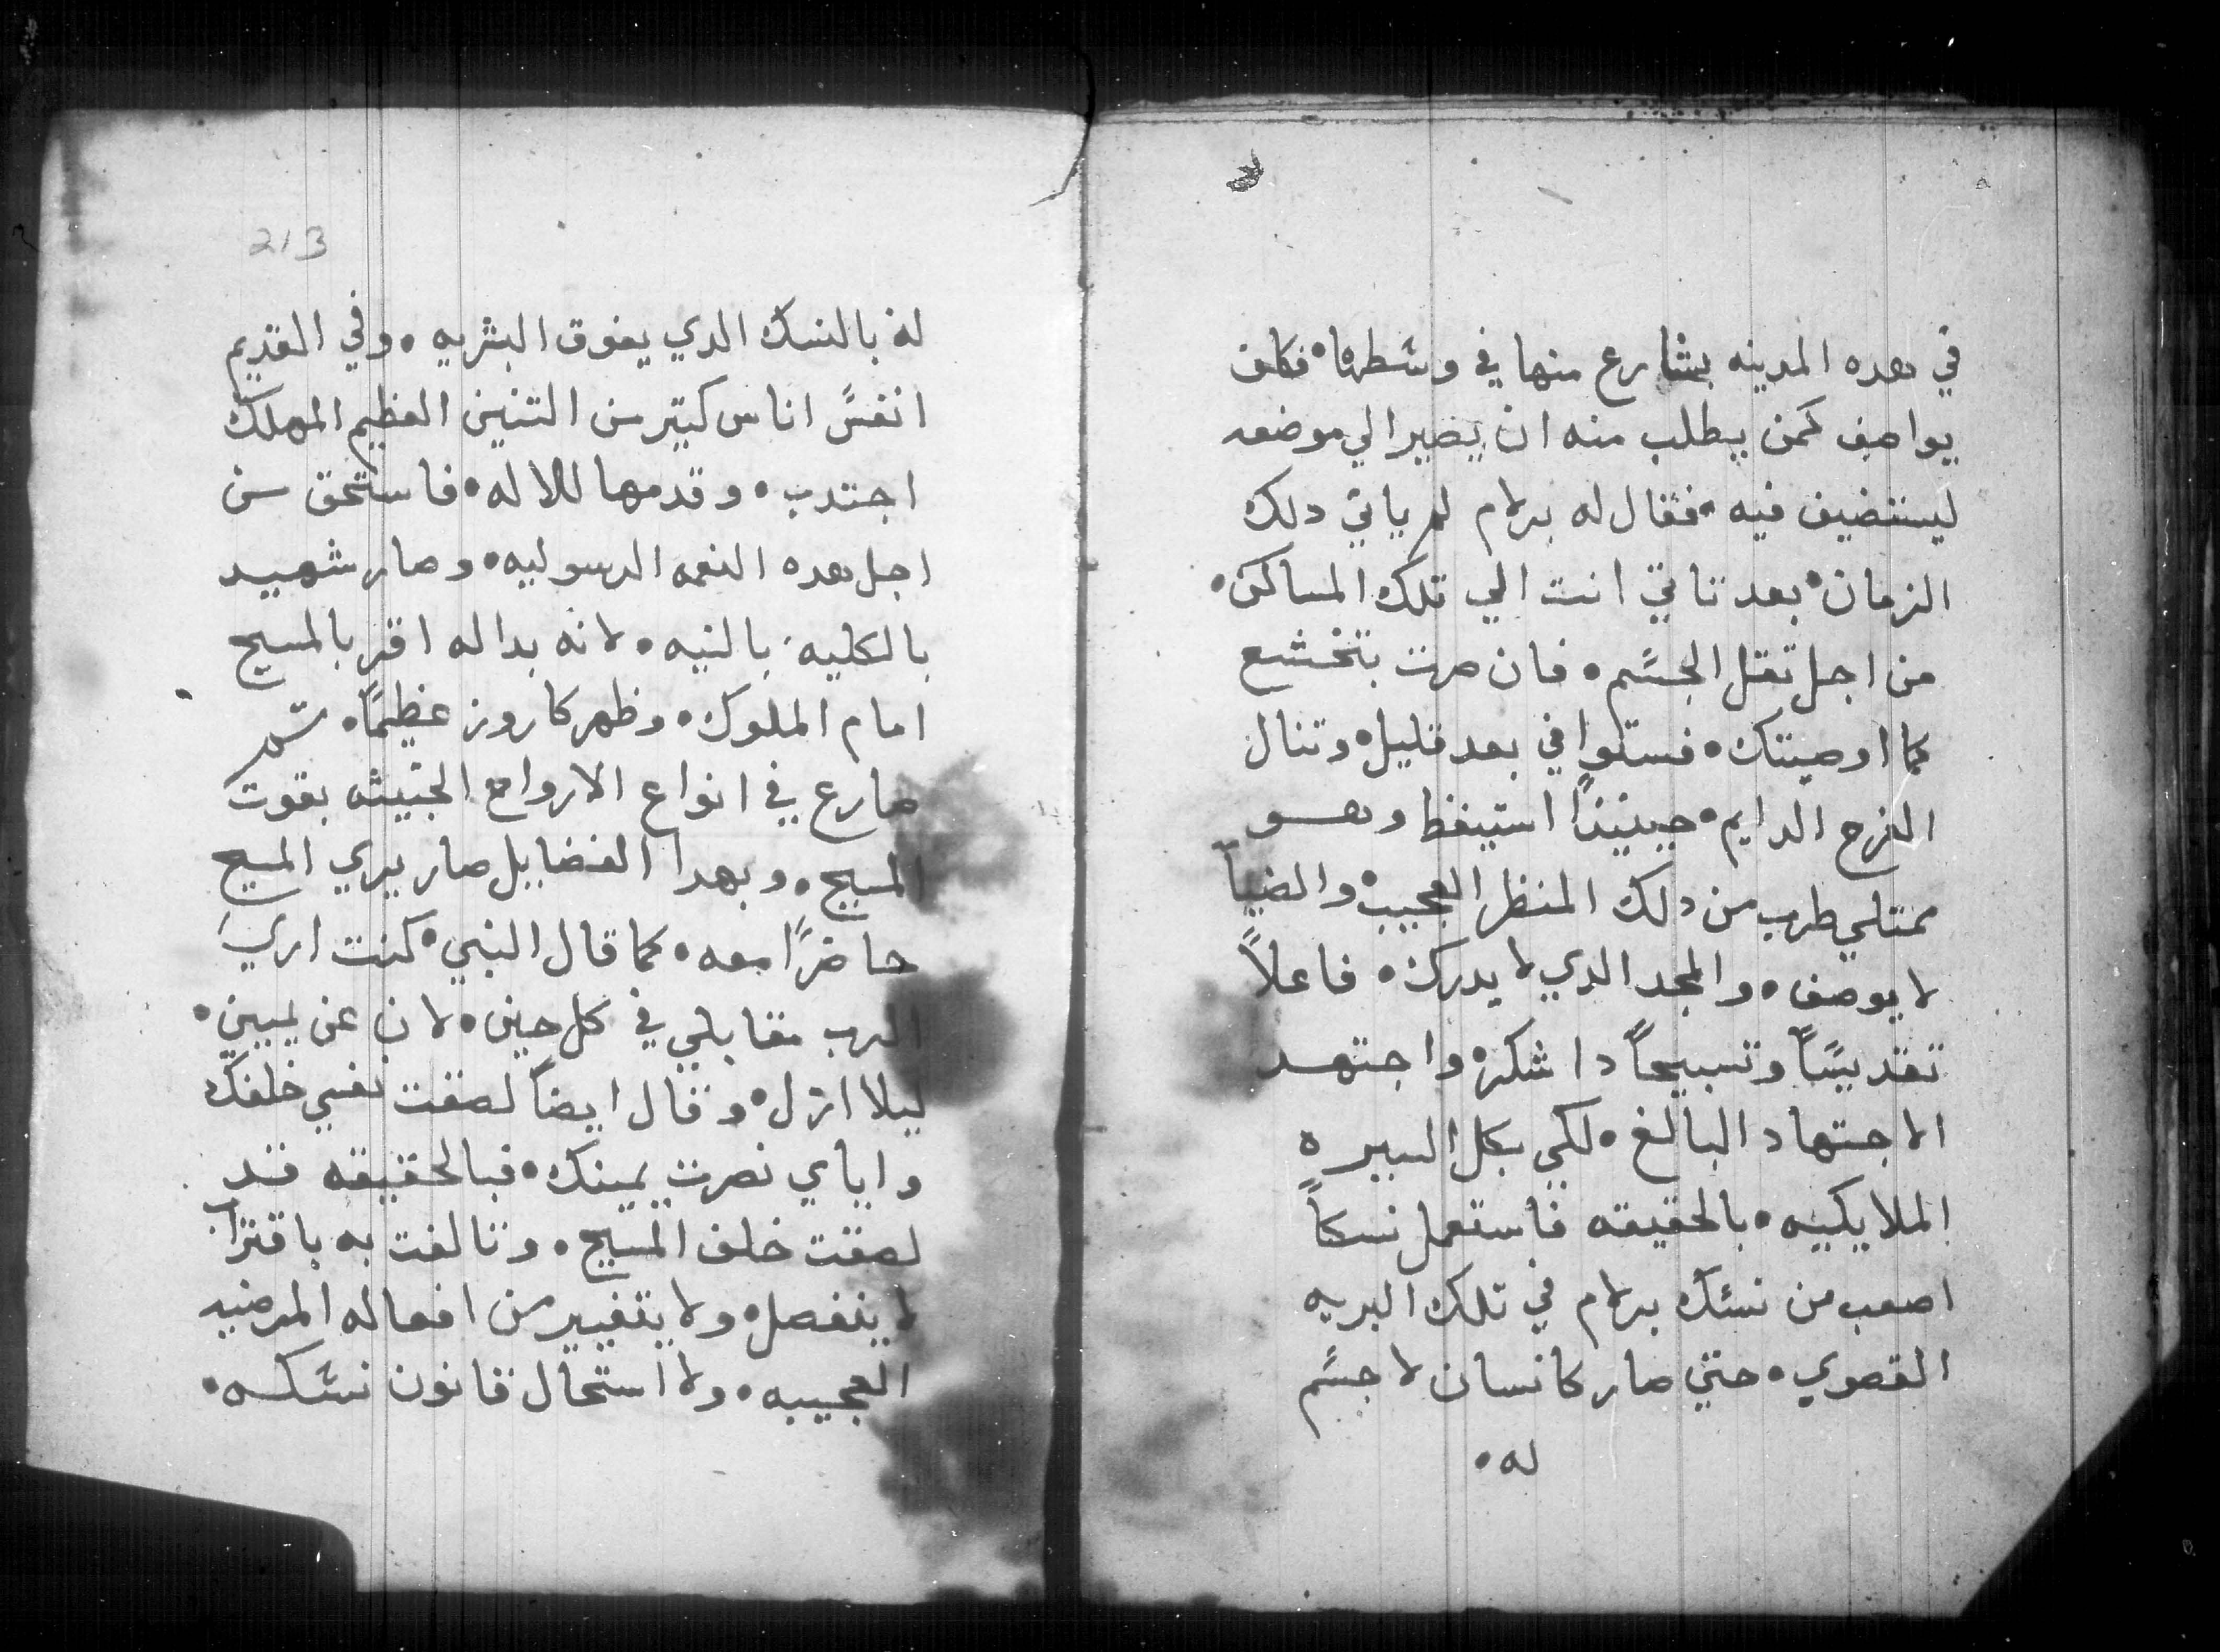 في هده المدينه بشارع منها في وسَطها • فكان
يواصف كمن يطلب منه ان يصير الي موضعه
ليستضيف فيه • فقال له برلام لم ياتي دلك
الزمان • بعد تاتي انت الي تلك المساكن •
من اجل تقل الجسَم • فان صرت بتخشع
كما اوصيتك • فستوافي بعد قليل • وتنال
الفرح الدايم • حينيذاً استيقظ وهو
ممتلي طرب من دلك المنظر العجيب • والضياً
لا يوصف • والمجد الدي لا يدرك • فاعلاً
تقديسَاً وتسبيحاً دا شكره واجتهد
الاجتهاد البالغ • لكي بكل السيره
الملايكيه • بالحقيقه فاستعمل نسكاً
اصعب من نسَك برلام في تلك البريه
القصوي • حتي صار كانسان لا جسَم
له •
213
له بالنسك الدي يفوق البشريه • وفي القديم
انفسَ اناس كتير من التنين العظيم المهلك
اجتدب • وقدمها للاله • فاستحق من
اجل هده النعمه الرسوليه • وصار شهيد
بالكليه بالنيه • لانه بداله اقر بالمسيح
امام الملوك • وظهر كاروز عظيمًا • تم
صارع في انواع الارواح الخبيثه بقوت
المسيح • وبهدا الفضايل صار يري المسيح
حاضرًا معه • كما قال النبي • كنت اري
الرب مقابلي في كل حين • لان عن يميني •
ليلا ازل • وقال ايضاً لصقت نفسي خلفك
واياي نصرت يمينك • فبالحقيقه قد
لصقت خلف المسيح • وتالفت به باقتراب
لا ينفصل • ولا يتغيير من افعاله المرضيه
العجيبه • ولا استحال قانون نسَكه •